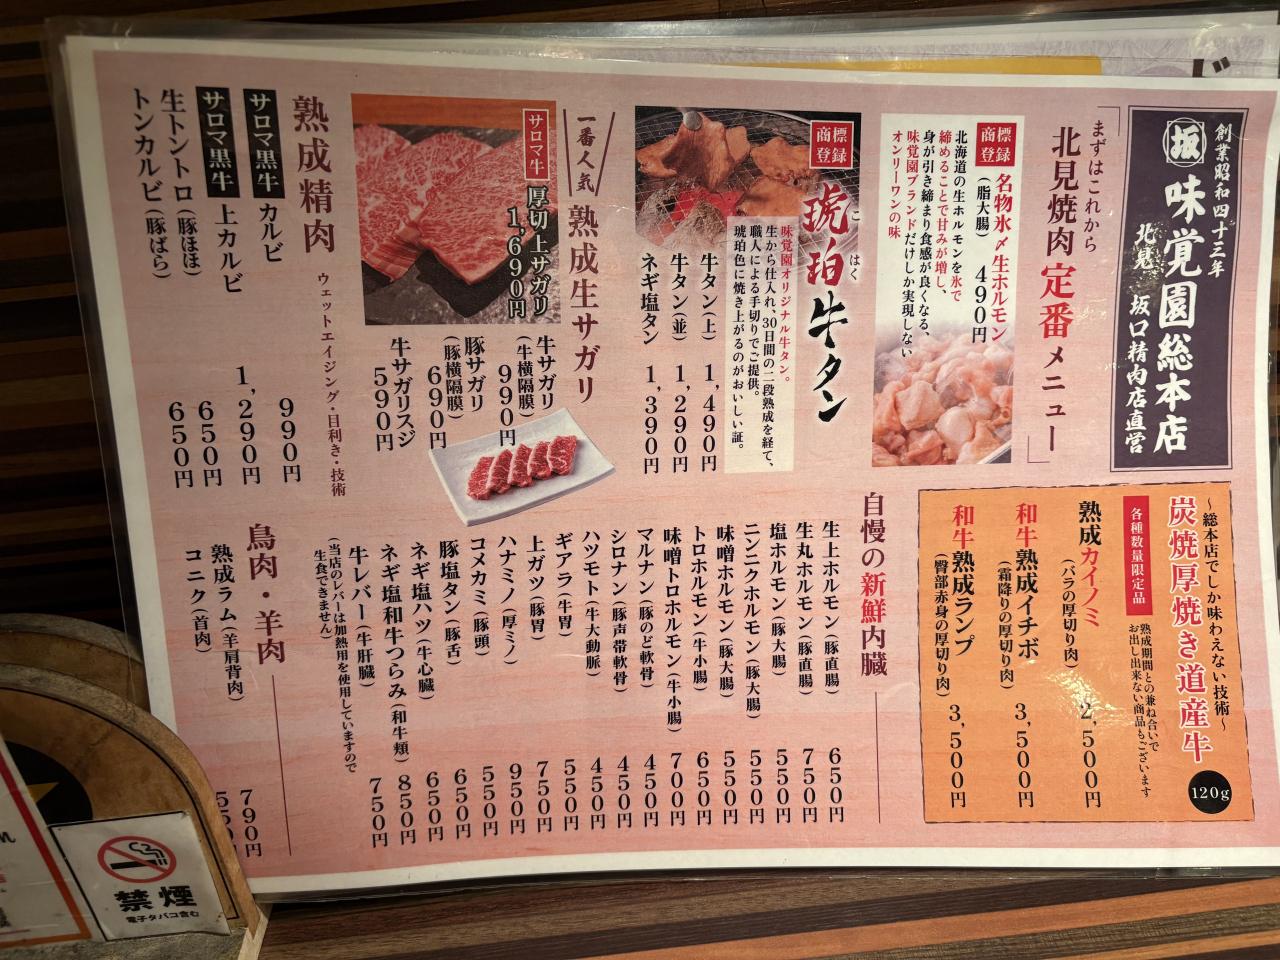 創業昭和四十三年
坂 味覚園総本店
北見 坂口精肉店直営
まずはこれから
北見焼肉定番メニュー
商標登録
名物氷〆生ホルモン
(脂大腸) 490円
北海道の生ホルモンを氷で
締めることで甘みが増し、
身が引き締まり食感が良くなる、
味覚園ブランドだけしか実現しない
オンリーワンの味
商標登録
琥珀牛タン
こはく
味覚園オリジナル牛タン。
生から仕入れ、30日間の二段熟成を経て、
職人による手切りでご提供。
琥珀色に焼き上がるのがおいしい証。
牛タン(上) 1,490円
牛タン(並) 1,290円
ネギ塩タン 1,390円
一番人気
熟成生サガリ
サロマ牛
厚切上サガリ
1,690円
牛サガリ
(牛横隔膜) 990円
豚サガリ
(豚横隔膜) 690円
牛サガリスジ
590円
熟成精肉
ウェットエイジング・目利き・技術
サロマ黒牛 カルビ 990円
サロマ黒牛 上カルビ 1,290円
生トントロ(豚ほほ) 650円
トンカルビ(豚ばら) 650円
〜総本店でしか味わえない技術〜
炭焼厚焼き道産牛
120g
各種数量限定品
熟成期間との兼ね合いで
お出し出来ない商品もございます
熟成カイノミ
(バラの厚切り肉) 2,500円
和牛熟成イチボ
(霜降りの厚切り肉) 3,500円
和牛熟成ランプ
(臀部赤身の厚切り肉) 3,500円
自慢の新鮮内臓
生上ホルモン(豚直腸) 650円
生丸ホルモン(豚直腸) 750円
塩ホルモン(豚大腸) 550円
ニンニクホルモン(豚大腸) 550円
味噌ホルモン(豚大腸) 550円
トロホルモン(牛小腸) 650円
味噌トロホルモン(牛小腸) 700円
マルナン(豚のど軟骨) 450円
シロナン(豚声帯軟骨) 450円
ハツモト(牛大動脈) 450円
ギアラ(牛胃) 550円
上ガツ(豚胃) 750円
ハナミノ(厚ミノ) 950円
コメカミ(豚頭) 550円
豚塩タン(豚舌) 650円
ネギ塩ハツ(牛心臓) 650円
ネギ塩和牛つらみ(和牛頬) 850円
牛レバー(牛肝臓) 750円
(当店のレバーは加熱用を使用していますので
生食できません)
鳥肉・羊肉
熟成ラム(羊肩背肉) 790円
コニク(首肉)
禁煙
電子タバコ含む